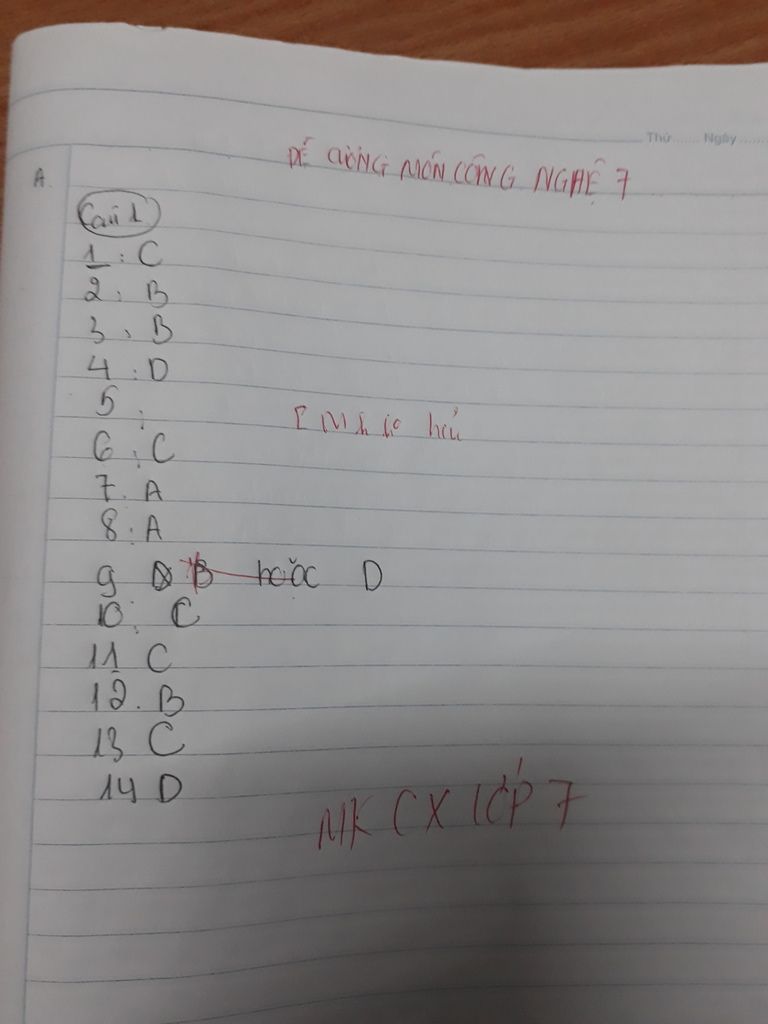 Thứ...... Ngày......
ĐỀ CƯƠNG MÔN CÔNG NGHỆ 7
A.
Câu 1
1: C
2: B
3: B
4: D
5:
6: C
7. A
8: A
9 B hoặc D
10: C
11 C
12. B
13 C
14 D
MK CX LỚP 7